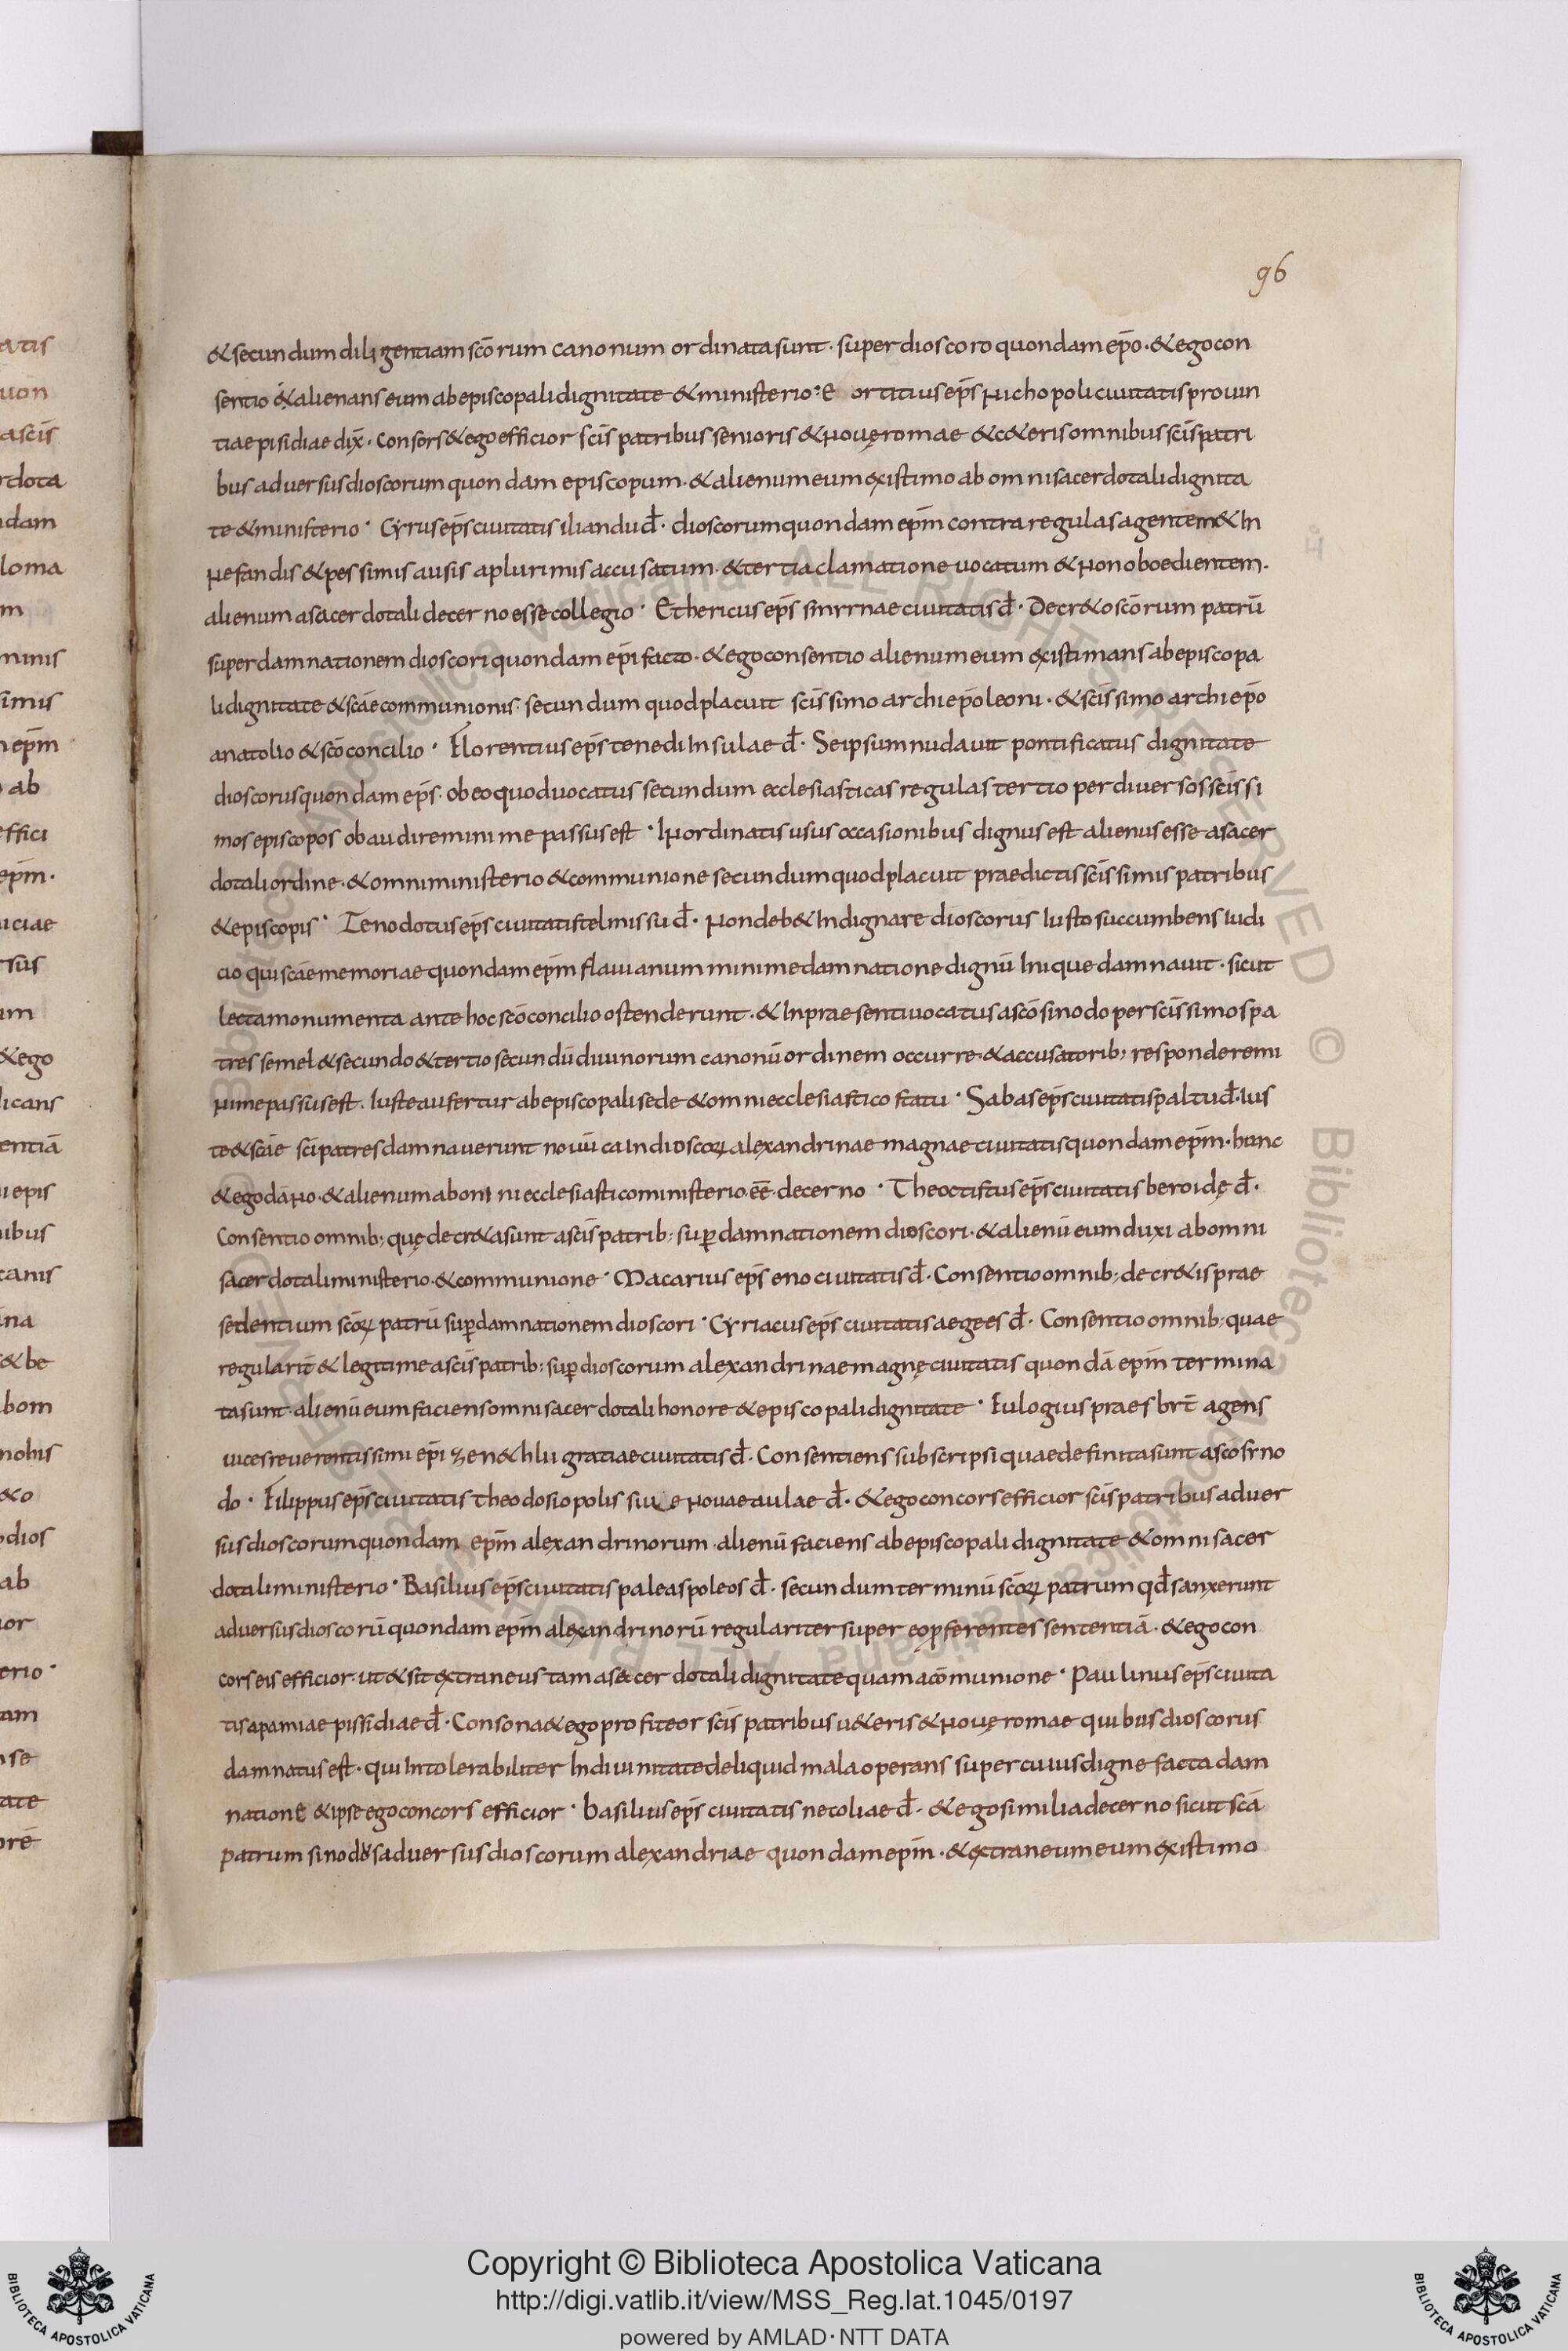 96
&secundum diligentiam scōrum canonum ordinata sunt. super dioscoro quondam ep̄o. & ego con
sentio & alienans eum ab episcopali dignitate & ministerio. E ortitius ep̄s nichopoli ciuitatis prouin
tiae pisidiae dix̄. Consors & ego efficior sc̄is patribus senioris & nouę romae & c&eris omnibus sc̄is patri
bus aduersus dioscorum quondam episcopum. & alienum eum existimo ab omni sacerdotali dignita
te & ministerio. Cyrus ep̄s ciuitatis iliandu đ. dioscorum quondam ep̄m contra regulas agentem & In
nefandis & pessimis ausis a plurimis accusatum. & tertia clamatione uocatum & non oboedientem.
alienum a sacerdotali decerno esse collegio. Ethericus ep̄s smyrnae ciuitatis đ. Decr&o scōrum patrū
super damnationem dioscori quondam ep̄i facto. & ego consentio alienum eum existimans ab episcopa
li dignitate & sc̄ae communionis. secundum quod placuit sc̄issimo archiep̄o leoni. & sc̄issimo archiep̄o
anatolio & sc̄o concilio. Florentius ep̄s tenedi Insulae đ. Se ipsum nudauit pontificatus dignitate
dioscorus quondam ep̄s. ob eo quod uocatus secundum ecclesiasticas regulas tertio per diuersos sc̄issi
mos episcopos obaudire minime passus est. Inordinatis usus occasionibus dignus est alienus esse a sacer
dotali ordine. & omni ministerio & communione secundum quod placuit praedictis sc̄issimis patribus
& episcopis. Zenodotus ep̄s ciuitatis telmissu đ. Non deb& Indignare dioscorus Iusto succumbens Iudi
cio qui sc̄ae memoriae quondam ep̄m flauianum minime damnatione dignū Inique damnauit. sicut
lecta monumenta ante hoc sc̄o concilio ostenderunt. & In praesenti uocatus a sc̄o sinodo per sc̄issimos pa
tres semel & secundo & tertio secundū diuinorum canonū ordinem occurre & accusatorib; respondere mi
nime passus est. Iuste aufertur ab episcopali sede & omni ecclesiastico statu. Sabas ep̄s ciuitatis paltu đ. Ius
te & sc̄ae sc̄i patres damnauerunt dioscoꝝ alexandrinae magnae ciuitatis quondam ep̄m. hunc
& ego dāno. & alienum ab omni ecclesiastico ministerio ēē decerno. Theoctistus ep̄s ciuitatis beroidę đ.
Consentio omnib; quę decr&a sunt a sc̄is patrib; suꝑ damnationem dioscori. & alienū eum duxi ab omni
sacerdotali ministerio & communione. Macarius ep̄s eno ciuitatis đ. Consentio omnib; decr&is prae
sedentium scōꝝ patrū suꝑ damnationem dioscori. Cyriacus ep̄s ciuitatis aegees đ. Consentio omnib; quae
regularit̄ & legitime a sc̄is patrib; suꝑ dioscorum alexandrinae magnę ciuitatis quondā ep̄m termina
ta sunt. alienū eum faciens omni sacerdotali honore & episcopali dignitate. Eulogius praesbr̄t agens
uices reuerentissimi ep̄i gratiae ciuitatis đ. Consentiens subscripsi quae definita sunt a sc̄o syno
do. Filippus ep̄s ciuitatis theodosiopolis siue nouae aulae đ. & ego concors efficior sc̄is patribus aduer
sus dioscorum quondam ep̄m alexandrinorum. alienū faciens ab episcopali dignitate & omni sacer
dotali ministerio. Basilius ep̄s ciuitatis paleaspoleos đ. secundum terminū scōꝝ patrum qđ sanxerunt
aduersus dioscorū quondam ep̄m alexandrinorū regulariter super eo ꝓferentes sententiā. & ego con
cors eis efficior. ut & sit extraneus tam a sacerdotali dignitate quam a cōmunione. Paulinus ep̄s ciuita
tis apamiae pissidiae đ. Consona & ego profiteor sc̄is patribus u&eris & nouę romae quibus dioscorus
damnatus est. qui Intolerabiliter In diuinitate deliquid mala operans super cuius digne facta dam
natione & ipse ego concors efficior. basilius ep̄s ciuitatis necoliae đ. & ego similia decerno sicut sc̄a
patrum sinodus aduersus dioscorum alexandriae quondam ep̄m. & extraneum eum existimo
Copyright © Biblioteca Apostolica Vaticana
http://digi.vatlib.it/view/MSS_Reg.lat.1045/0197
powered by AMLAD·NTT DATA